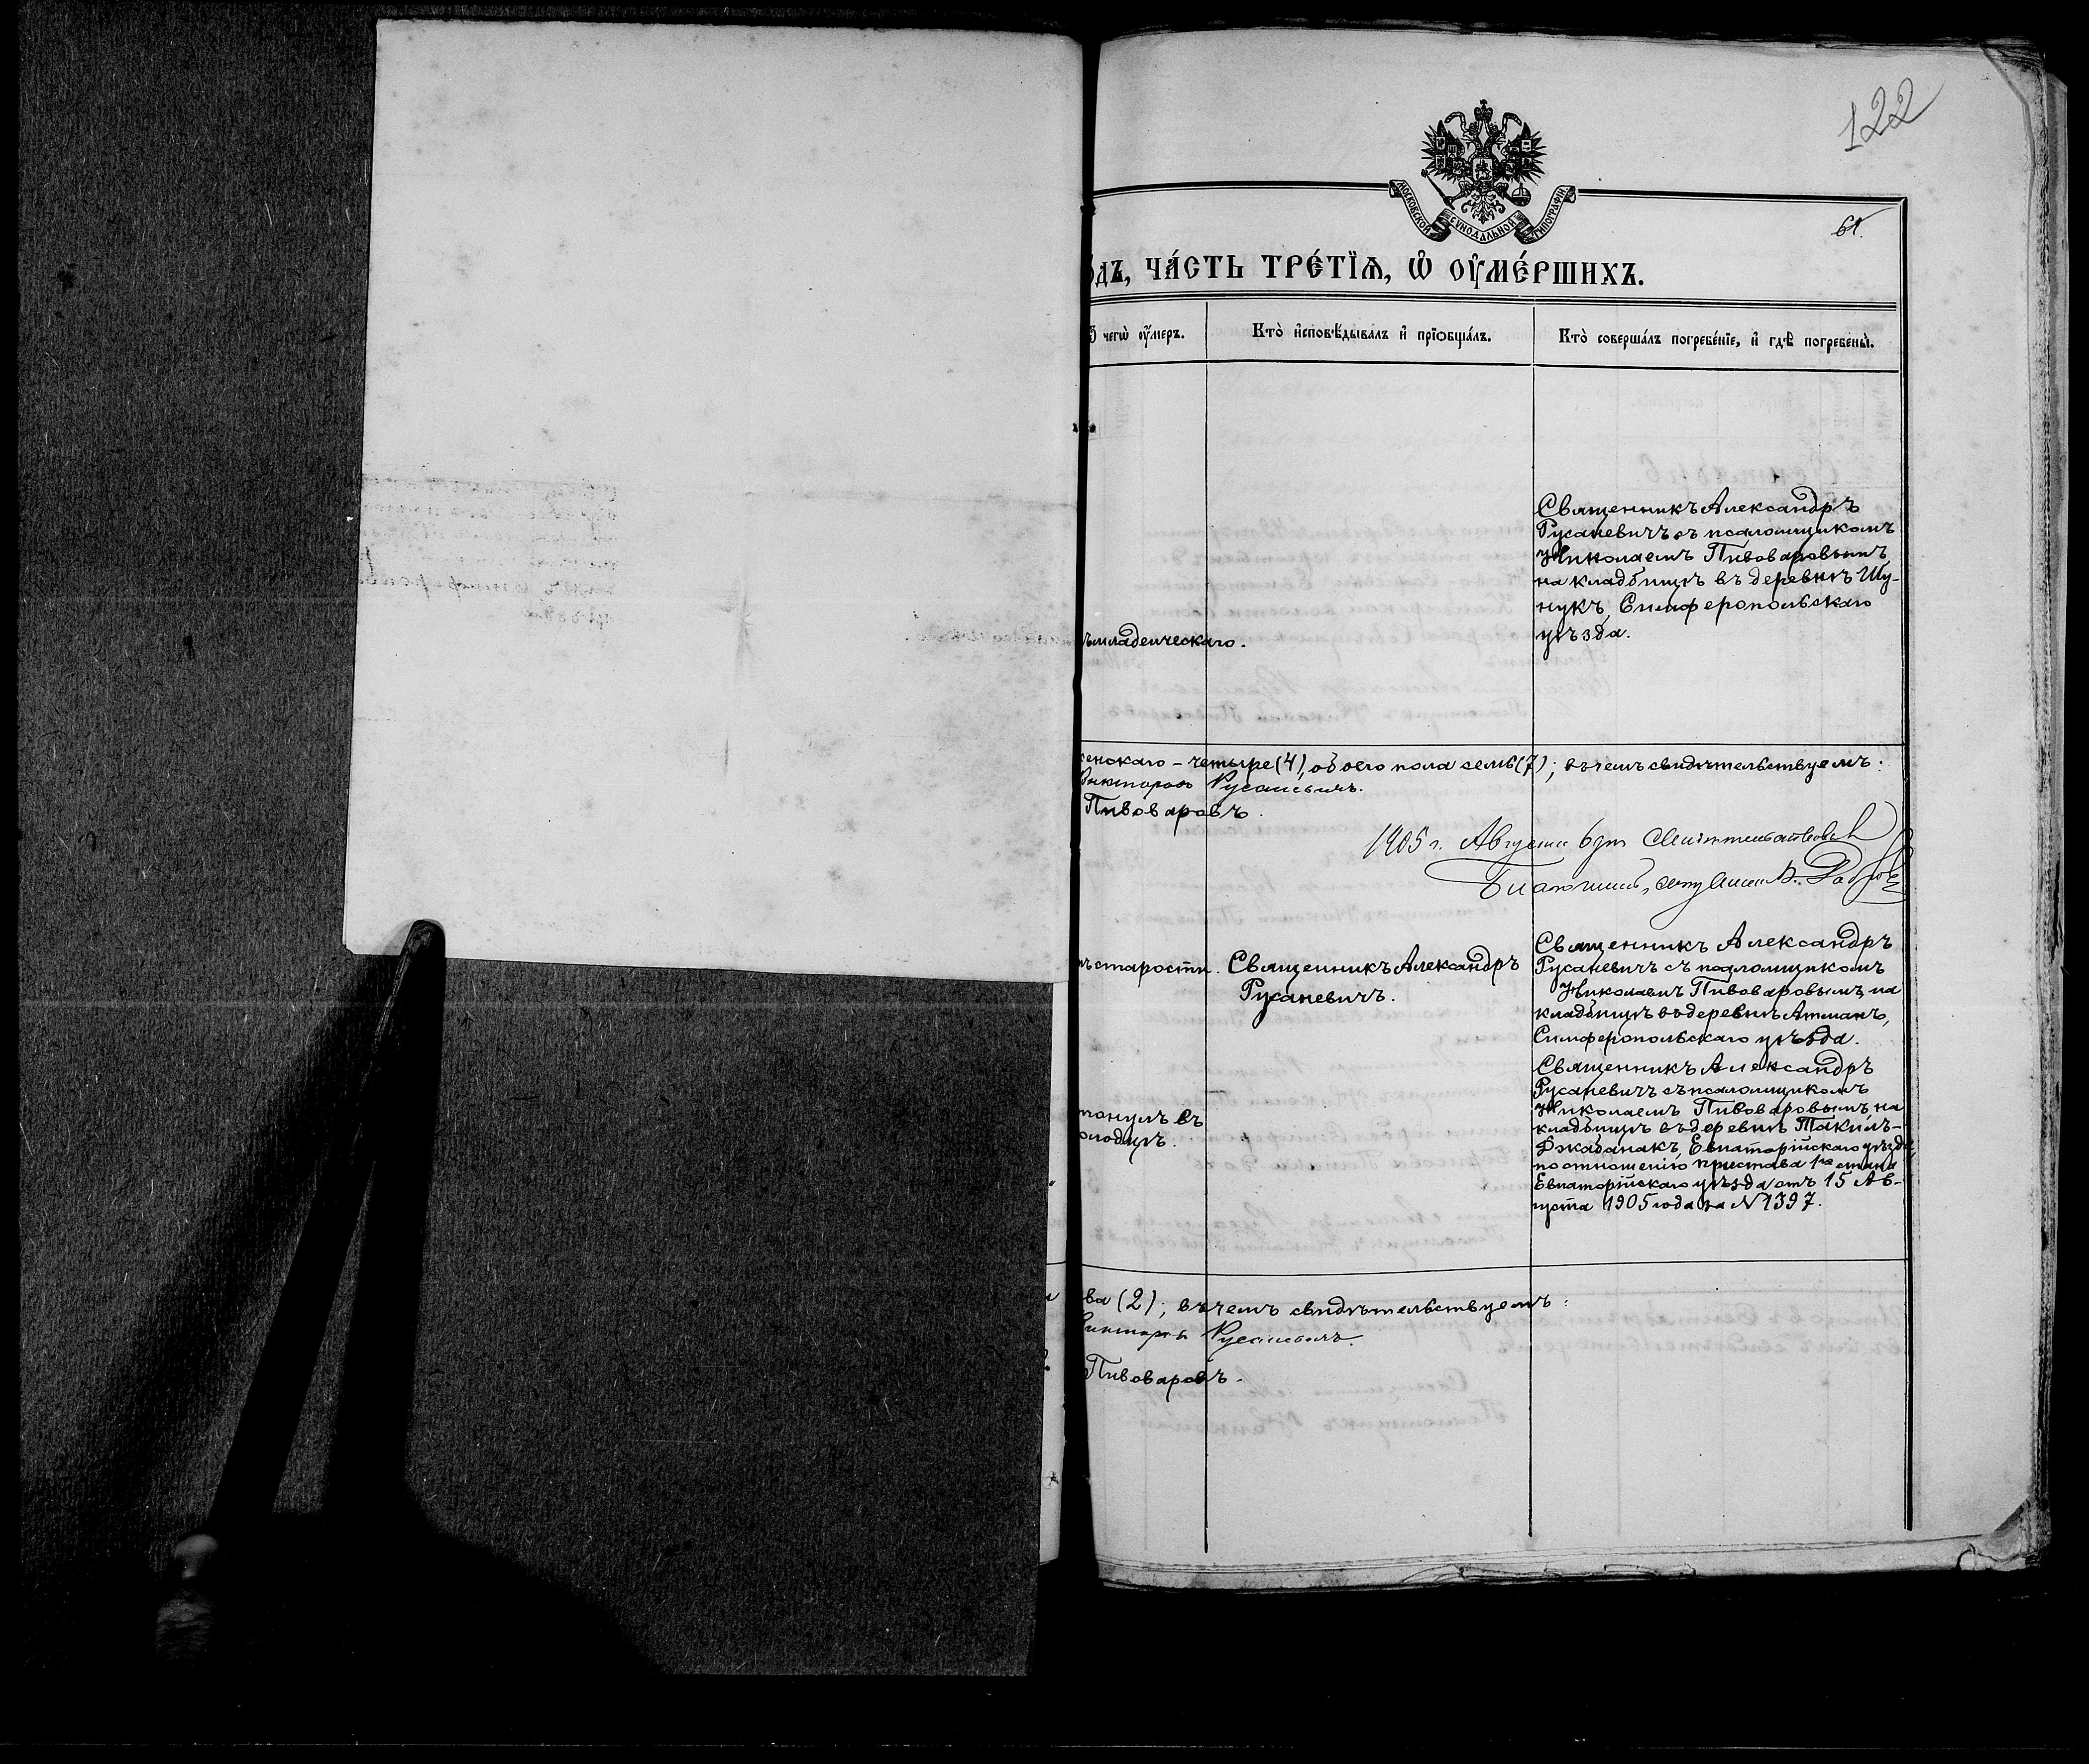 122
МОСКОВСКОЙ СѴНОДАЛЬНОЙ ТИПОГРАФІИ
61.
одъ, ча́сть тре́тїѧ, ѡ҆ ᲂу҆ме́ршихъ.
чегѡ̀ ᲂу҆́меръ.
Кто̀ и҆сповѣ́дывалъ и҆ прїѡбща́лъ.
Кто̀ соверша́лъ погребе́нїе, и҆ гдѣ̀ погребены̀.
Священникъ Александръ
Русаневичъ съ псаломщикомъ
Николаемъ Пивоваровымъ
на кладбищѣ въ деревнѣ Шу-
нукъ, Симферопольскаго
уѣзда.
младенческаго.
женскаго – четыре (4), обоего пола семь (7); въ чемъ свидѣтельствуемъ:
Викторовъ Русаневичъ.
Пивоваровъ.
1905 г. Августа 6 дня
Благочинный, священникъ В.
старости.
Священникъ Александръ
Русаневичъ.
Священникъ Александръ
Русаневичъ съ псаломщикомъ
Николаемъ Пивоваровымъ, на
кладбищѣ въ деревнѣ Атманъ,
Симферопольскаго уѣзда.
тонулъ въ
олодцѣ.
Священникъ Александръ
Русаневичъ съ псаломщикомъ
Николаемъ Пивоваровымъ, на
кладбищѣ въ деревнѣ Такилъ-
Джабанакъ, Евпаторійскаго уѣзда,
по отношенію пристава 1го стана
Евпаторійскаго уѣзда отъ 15 Ав-
густа 1905 года за № 1397.
ва (2); въ чемъ свидѣтельствуемъ:
Викторовъ Русаневичъ.
Пивоваровъ.